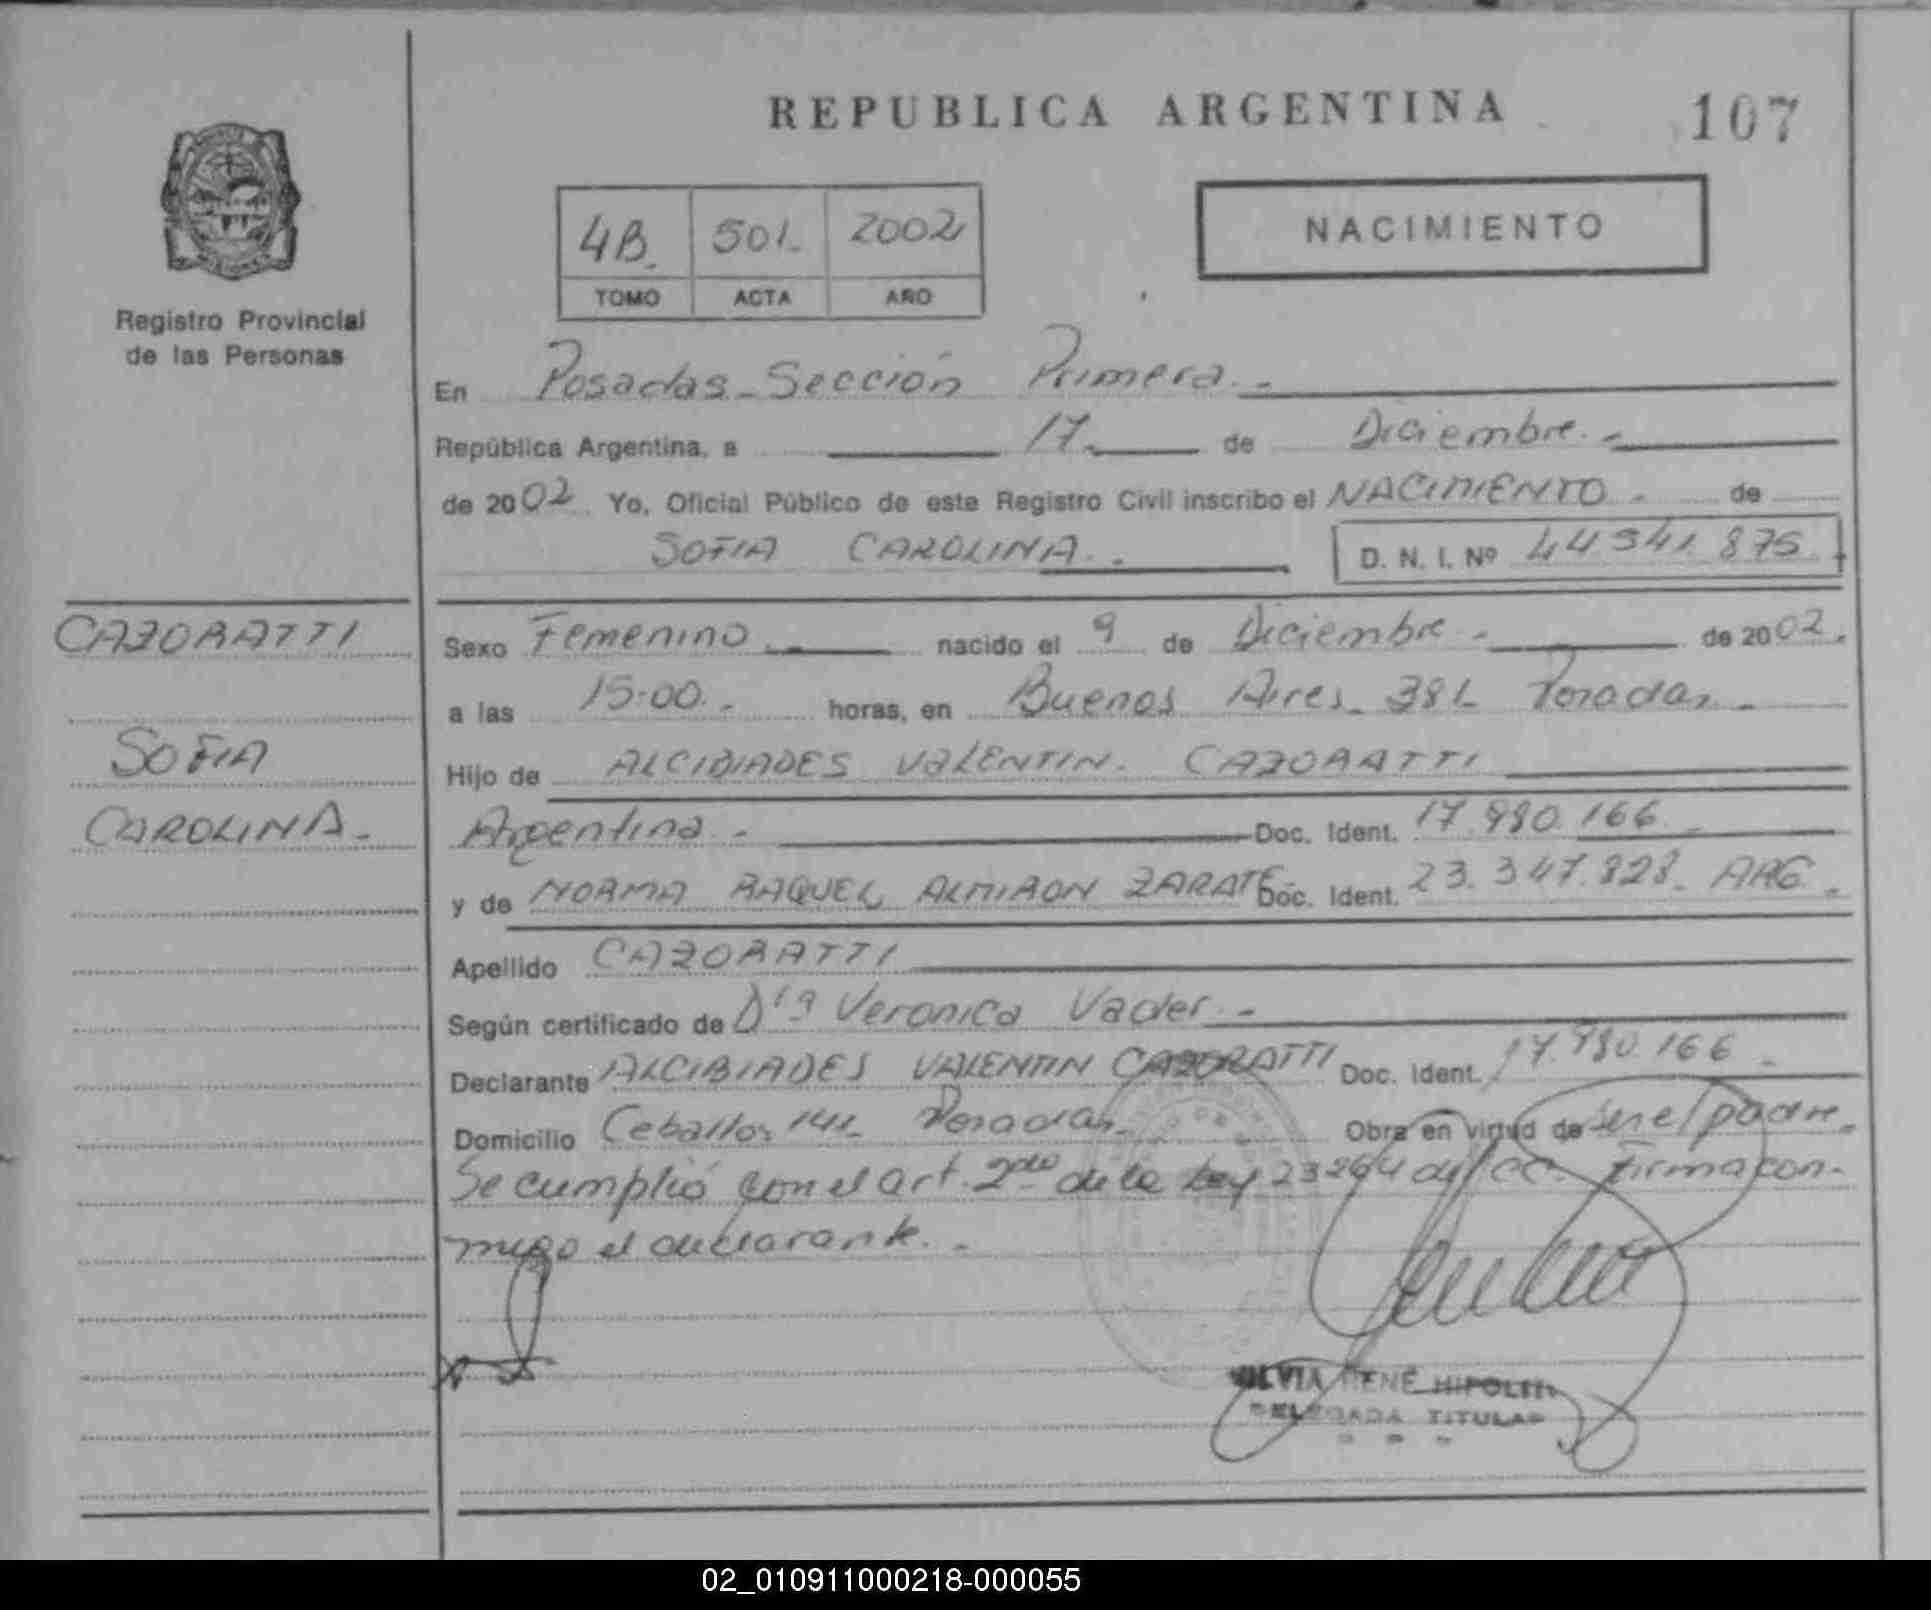 REPUBLICA ARGENTINA 107
NACIMIENTO
4B. 501- 2002
TOMO ACTA AÑO
Registro Provincial
de las Personas
En Posadas - Sección Primera. -
República Argentina, a 17 de Diciembre. -
de 2002. Yo, Oficial Público de este Registro Civil inscribo el NACIMIENTO. de
SOFIA CAROLINA. - D. N. I. Nº 44 541 875
CAZORATTI
SOFIA
CAROLINA. -
Sexo Femenino nacido el 9 de Diciembre - de 2002.
a las 15:00. - horas, en Buenos Aires - 381- Posadas -
Hijo de ALCIBIADES VALENTIN. CAZORATTI
Argentina - Doc. Ident. 17.980.166. -
y de NORMA RAQUEL ALMIRON ZARATE Doc. Ident. 23.347.828. ARG. -
Apellido CAZORATTI
Según certificado de Dra Veronica Vader. -
Declarante ALCIBIADES VALENTIN CAZORATTI Doc. Ident. 17.980.166 -
Domicilio Ceballos 141- Posadas - Obra en virtud de ser el padre.
Se cumplió con el art. 2do de la Ley 23264 del CC. firma con-
migo el declarante. -
SILVIA RENÉ HIPOLITO
DELEGADA TITULAR
02_010911000218-000055